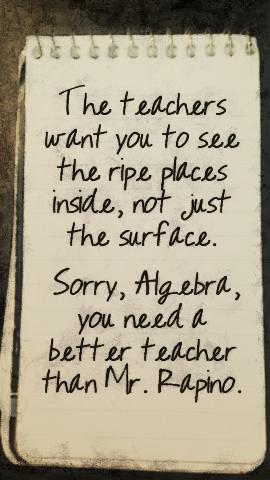 The teachers
want you to see
the ripe places
inside, not just
the surface.
Sorry, Algebra,
you need a
better teacher
than Mr. Rapino.